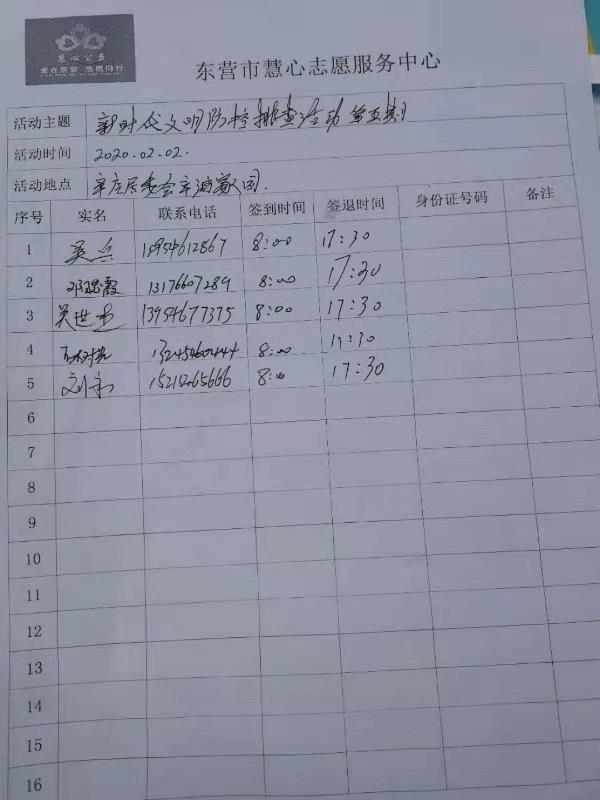 慧心公益
爱在东营 志愿同行
东营市慧心志愿服务中心
活动主题 新时代文明防控排查活动第五期
活动时间 2020.02.02.
活动地点 辛庄居委会
序号 实名 联系电话 签到时间 签退时间 身份证号码 备注
1 吴兵 8:00 17:30
2 13176607289 8:00 17:30
3 吴世 13954677375 8:00 17:30
4 8:00 17:30
5 刘 8:00 17:30
6
7
8
9
10
11
12
13
14
15
16